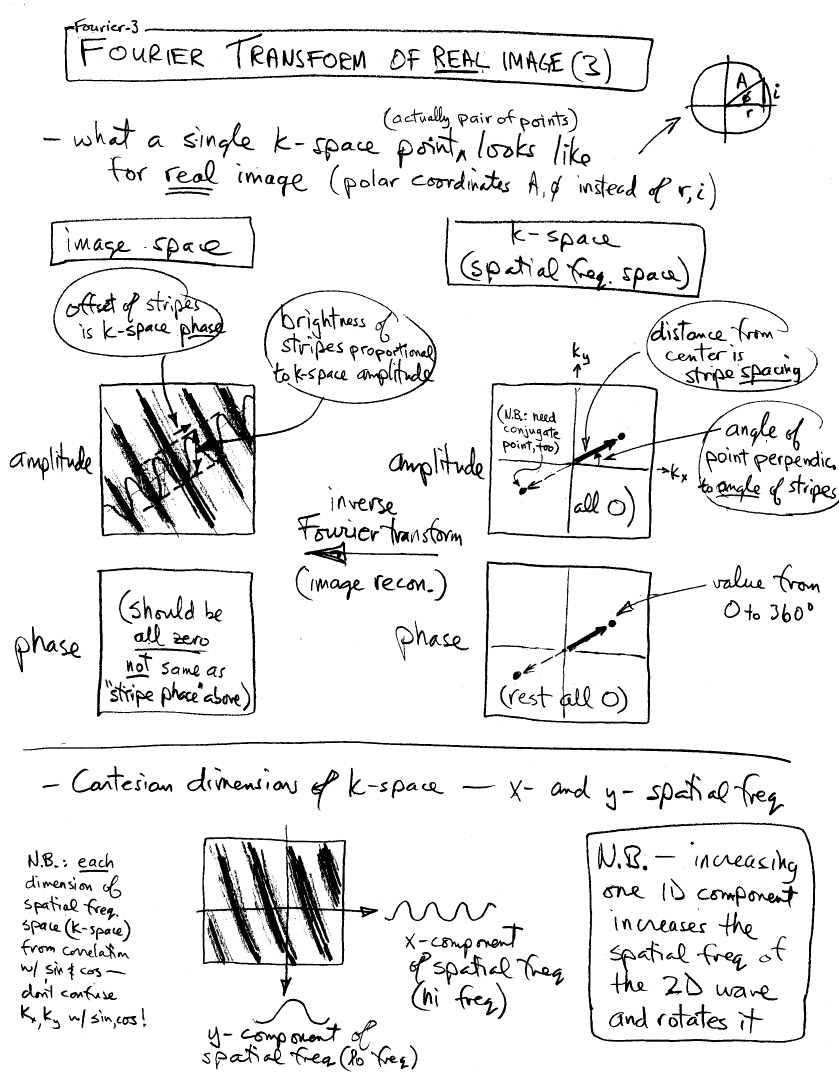 Fourier-3
FOURIER TRANSFORM OF REAL IMAGE (3)
A
i
φ
r
(actually pair of points)
- what a single k-space point^ looks like
for real image (polar coordinates A,φ instead of r,i)
image space
k-space
(spatial freq. space)
offset of stripes
is k-space phase
brightness of
stripes proportional
to k-space amplitude
distance from
center is
stripe spacing
ky
amplitude
amplitude
(N.B.: need
conjugate
point, too)
kx
all 0)
angle of
point perpendic.
to angle of stripes
inverse
Fourier transform
(image recon.)
phase
(should be
all zero
not same as
"stripe phase" above)
phase
(rest all 0)
value from
0 to 360°
- Cartesian dimensions of k-space — x- and y- spatial freq
N.B.: each
dimension of
spatial freq.
space (k-space)
from correlation
w/ sin & cos —
don't confuse
kx, ky w/ sin, cos!
x-component
of spatial freq
(hi freq)
y-component of
spatial freq (lo freq)
N.B. — increasing
one 1D component
increases the
spatial freq of
the 2D wave
and rotates it